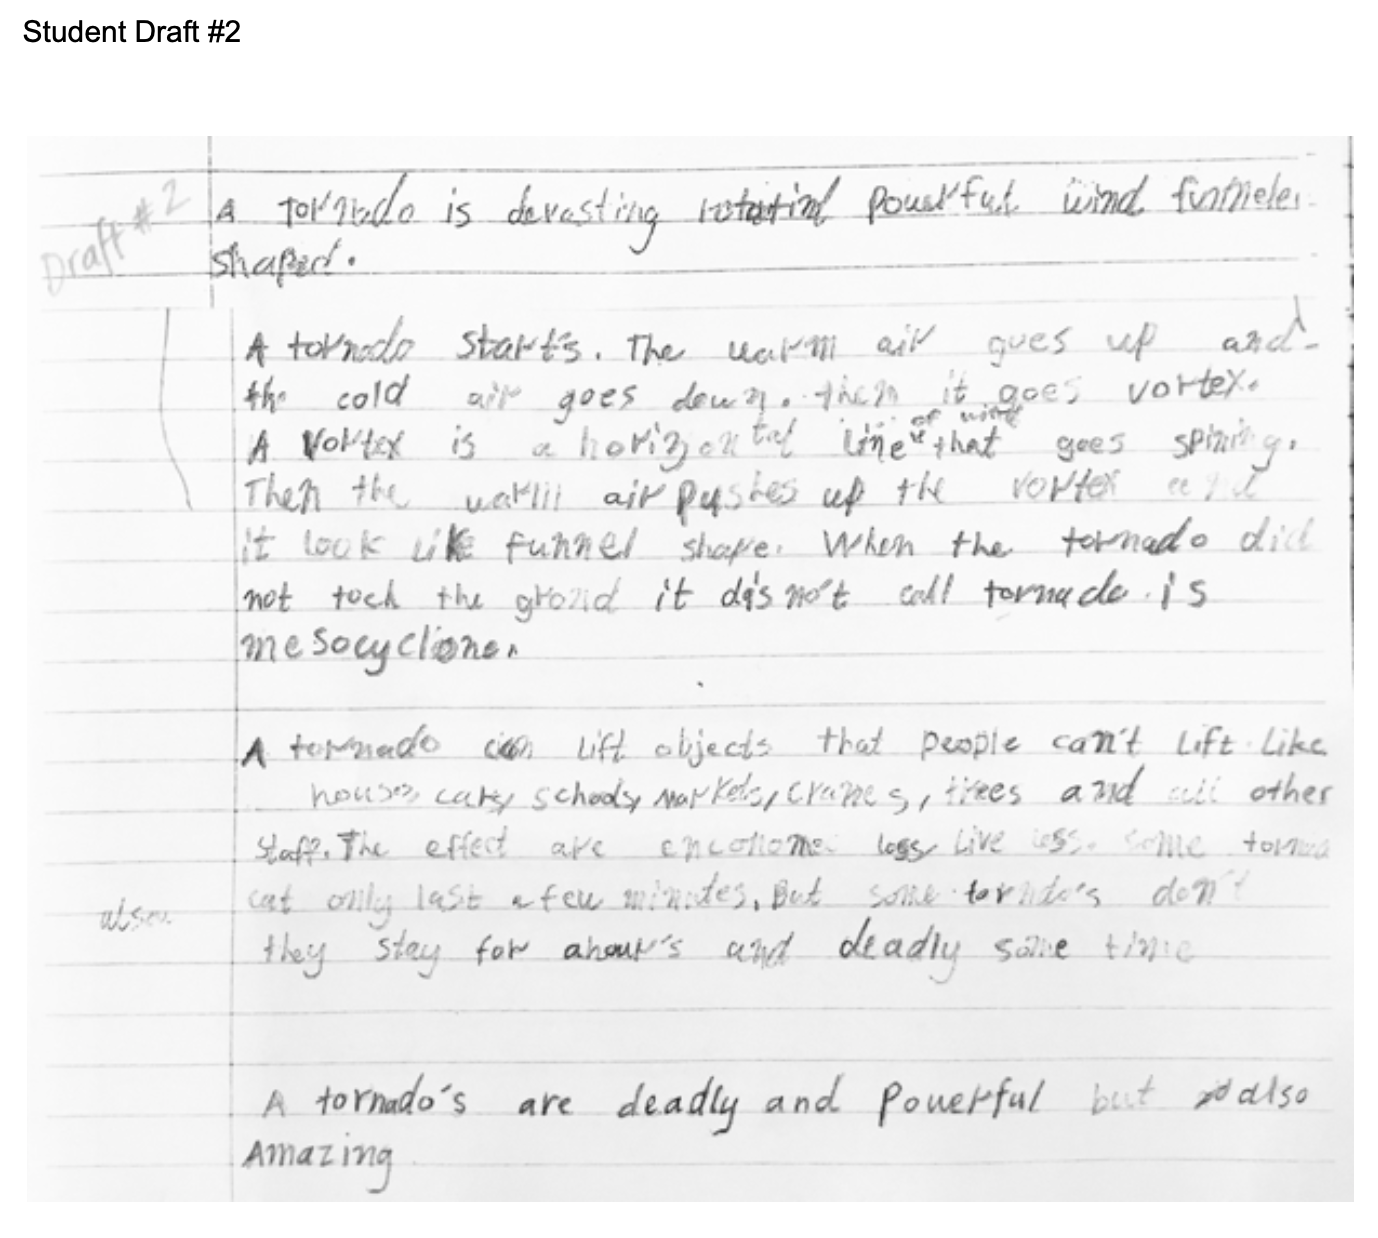 Student Draft #2
Draft #2
A tornado is devasting powerful wind funneler
shaped.
A tornado start's. The warm air goes up and
the cold air goes down. then it goes vortex.
of wind
A vortex is a horizontal line that goes spining.
Then the warm air pushes up the vortex and
it look like funnel shape. When the tornado did
not toch the grond it not call tornado is
mesocyclone.
A tornado can lift objects that people can't lift like
houses, cars, schools, markets, cranes, trees and all other
staff. The effect are loss live loss. some
only last a few minutes. But some don't
also
they stay for ahour's and deadly same time
A tornado's are deadly and powerful but also
Amazing